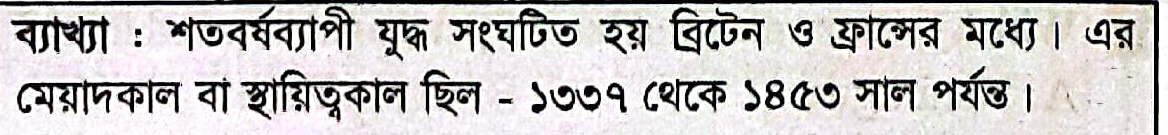 ব্যাখ্যা : শতবর্ষব্যাপী যুদ্ধ সংঘটিত হয় ব্রিটেন ও ফ্রান্সের মধ্যে। এর
মেয়াদকাল বা স্থায়িত্বকাল ছিল - ১৩৩৭ থেকে ১৪৫৩ সাল পর্যন্ত।